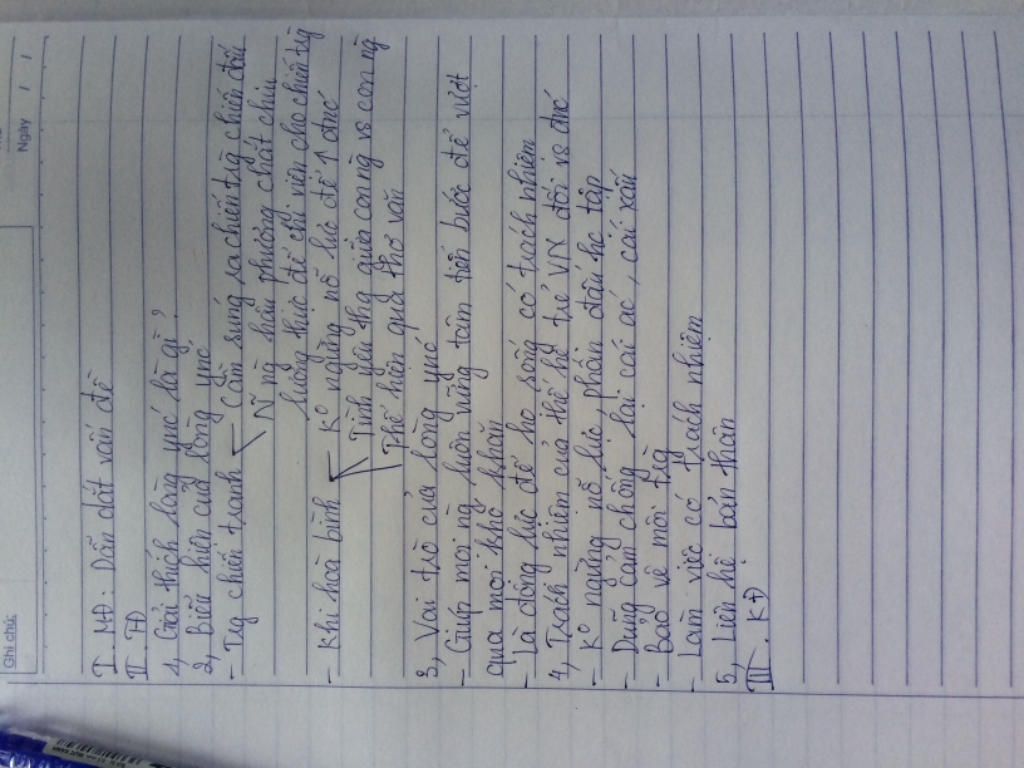 Ghi chú:
Ngày / /
I. MĐ: Dẫn dắt vấn đề
II. TĐ
1, Giải thích lòng ynć là gì?
2, Biểu hiện của lòng ynć
- Trg chiến tranh Cầm súng ra chiến trg chiến đấu
ng hậu phương chắt chiu
lương thực để chi viện cho chiến trg
- Khi hoà bình Ko ngừng nỗ lực để ↑ đnć
Tình yêu thg giữa con ng vs con ng
Thể hiện qua thơ văn
3, Vai trò của lòng ynć
- Giúp mọi ng luôn vững tâm tiến bước để vượt
qua mọi khó khăn
- Là động lực để họ sống có trách nhiệm
4, Trách nhiệm của thế hệ trẻ VN đối vs đnć
- Ko ngừng nỗ lực, phấn đấu học tập
- Dũng cảm chống lại cái ác, cái xấu
- Bảo vệ môi trg
- Làm việc có trách nhiệm
5, Liên hệ bản thân
III. KĐ